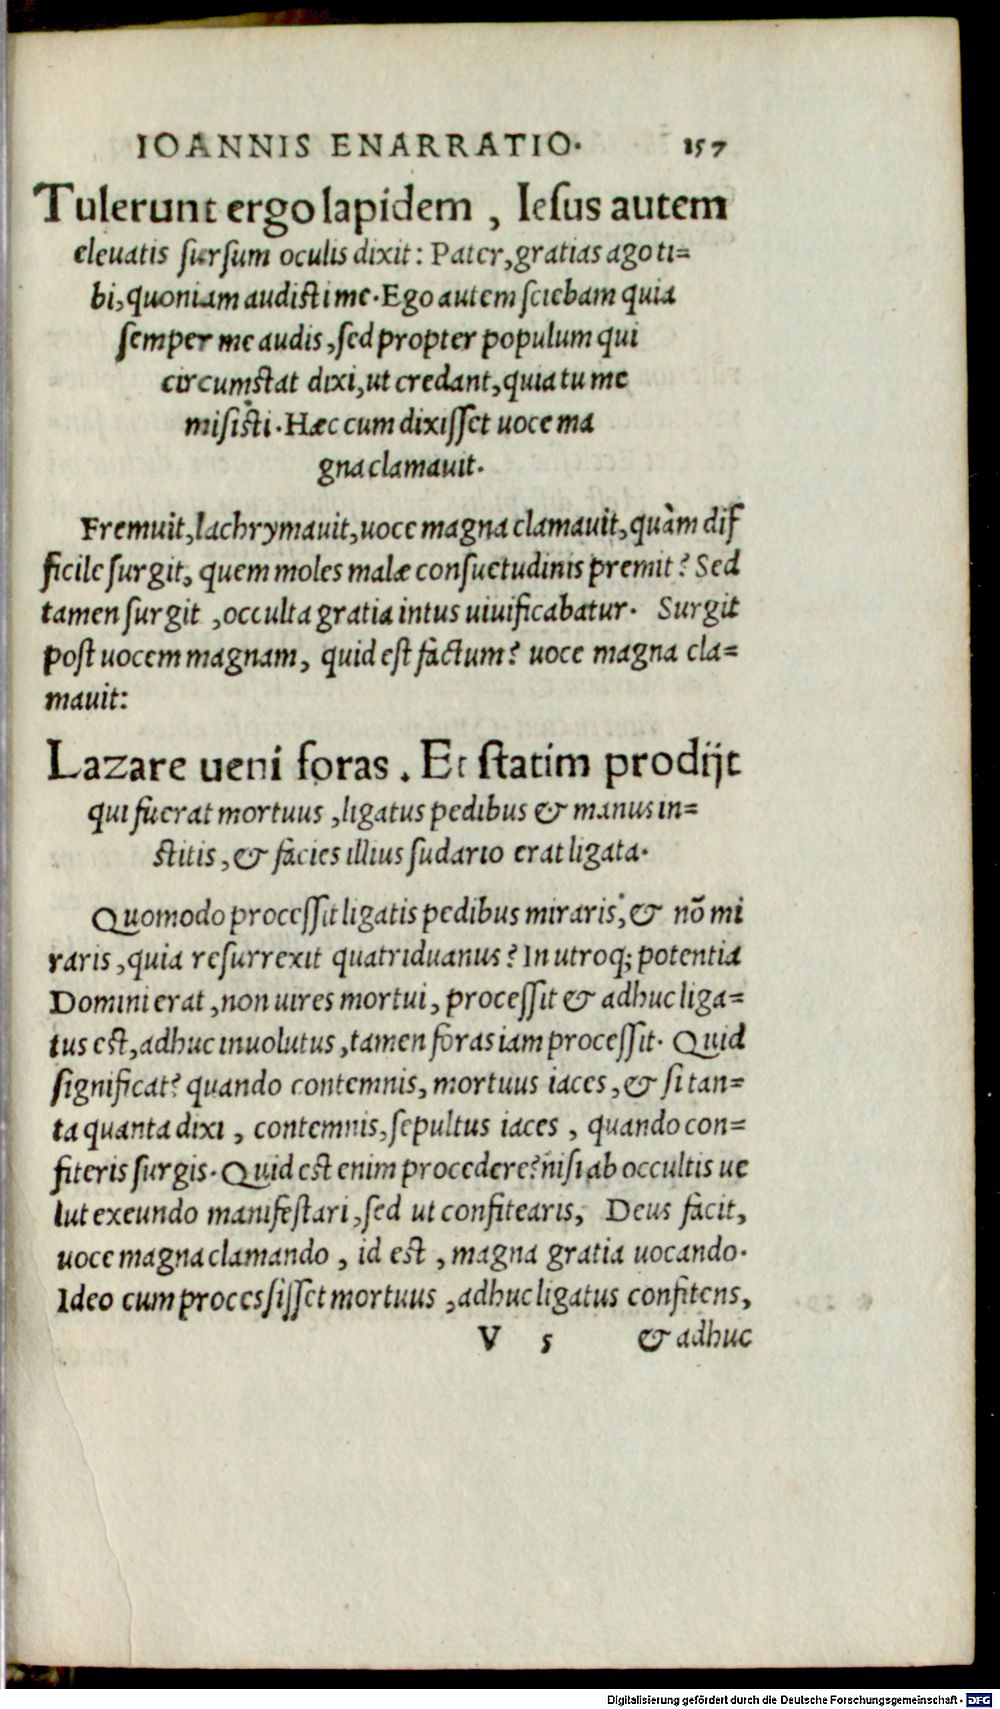 IOANNIS ENARRATIO. 157
Tulerunt ergo lapidem, Iesus autem
eleuatis sursum oculis dixit: Pater, gratias ago ti=
bi, quoniam audisti me. Ego autem sciebam quia
semper me audis, sed propter populum qui
circumstat dixi, ut credant, quia tu me
misisti. Hæc cum dixisset uoce ma
gna clamauit.
Fremuit, lachrymauit, uoce magna clamauit, quàm dif
ficile surgit, quem moles malæ consuetudinis premit? Sed
tamen surgit, occulta gratia intus uiuificabatur. Surgit
post uocem magnam, quid est factum? uoce magna cla=
mauit:
Lazare ueni foras. Et statim prodijt
qui fuerat mortuus, ligatus pedibus & manus in=
stitis, & facies illius sudario erat ligata.
Quomodo processit ligatis pedibus miraris, & nõ mi
raris, quia resurrexit quatriduanus? In utroq; potentia
Domini erat, non uires mortui, processit & adhuc liga=
tus est, adhuc inuolutus, tamen foras iam processit. Quid
significat? quando contemnis, mortuus iaces, & si tan=
ta quanta dixi, contemnis, sepultus iaces, quando con=
fiteris surgis. Quid est enim procedere? nisi ab occultis ue
lut exeundo manifestari, sed ut confitearis, Deus facit,
uoce magna clamando, id est, magna gratia uocando.
Ideo cum processisset mortuus, adhuc ligatus confitens,
V 5 & adhuc
Digitalisierung gefördert durch die Deutsche Forschungsgemeinschaft - DFG